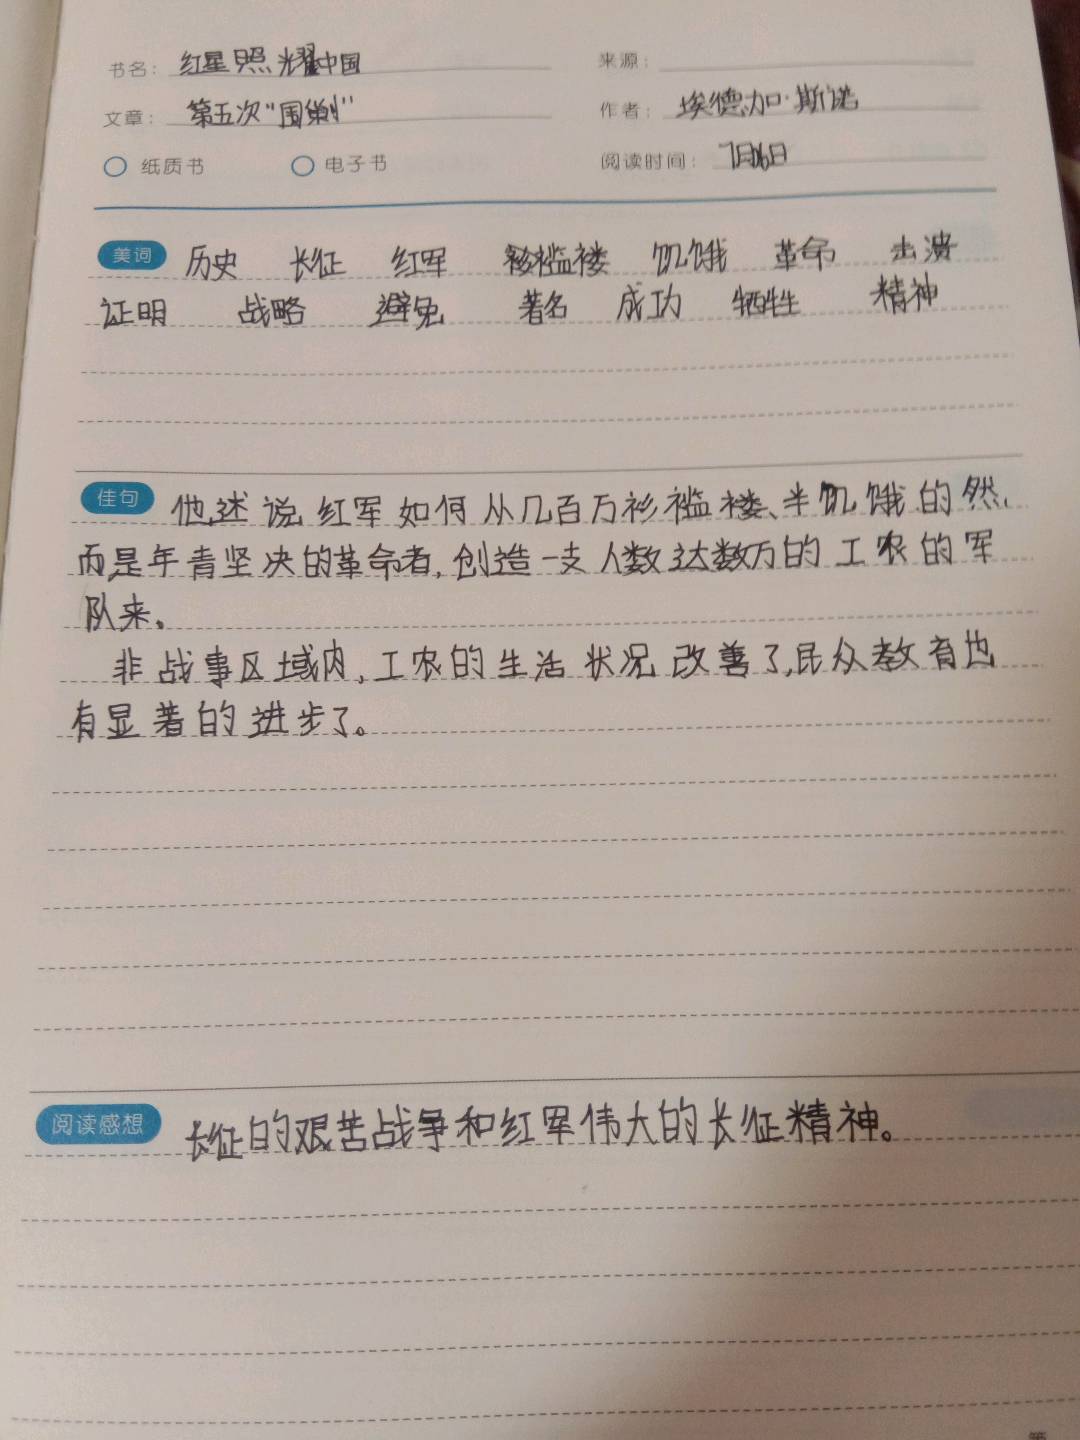 书名： 红星照耀中国 来源：
文章： 第五次“围剿” 作者： 埃德加·斯诺
纸质书 电子书 阅读时间： 7月16日
美词 历史 长征 红军 褴褛 饥饿 革命 击溃
证明 战略 避免 著名 成功 牺牲 精神
佳句 他述说红军如何从几百万衫褴褛、半饥饿的然、
而是年青坚决的革命者,创造一支人数达数万的工农的军
队来。
非战事区域内,工农的生活状况改善了,民众教育也
有显著的进步了。
阅读感想 长征的艰苦战争和红军伟大的长征精神。